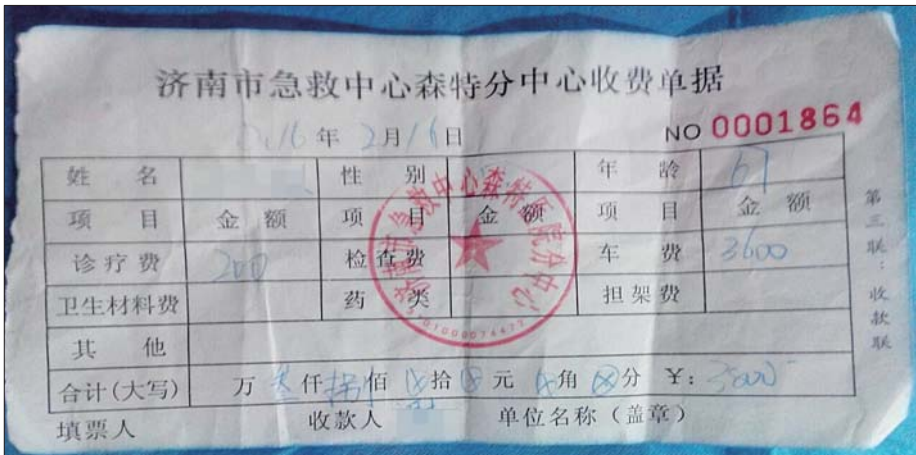 济南市急救中心森特分中心收费单据
2016年2月16日 NO 0001864
姓名 性别 年龄 67
项目 金额 项目 金额 项目 金额
诊疗费 200 检查费 车费 3600
卫生材料费 药类 担架费
其他
合计(大写) 万叁仟捌佰拾元角分 ¥:
填票人 收款人 单位名称(盖章)
第三联:收款联
济南市急救中心森特医院分中心